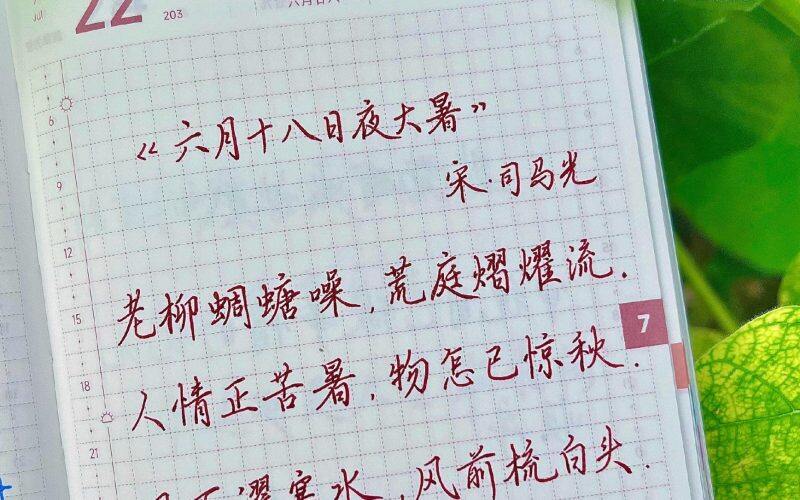 JUL
22
203
《六月十八日夜大暑》
宋·司马光
6
9
12
15
18
21
老柳蜩螗噪,荒庭熠燿流.
7
人情正苦暑,物怎已惊秋.
下濯寒水,风前梳白头.